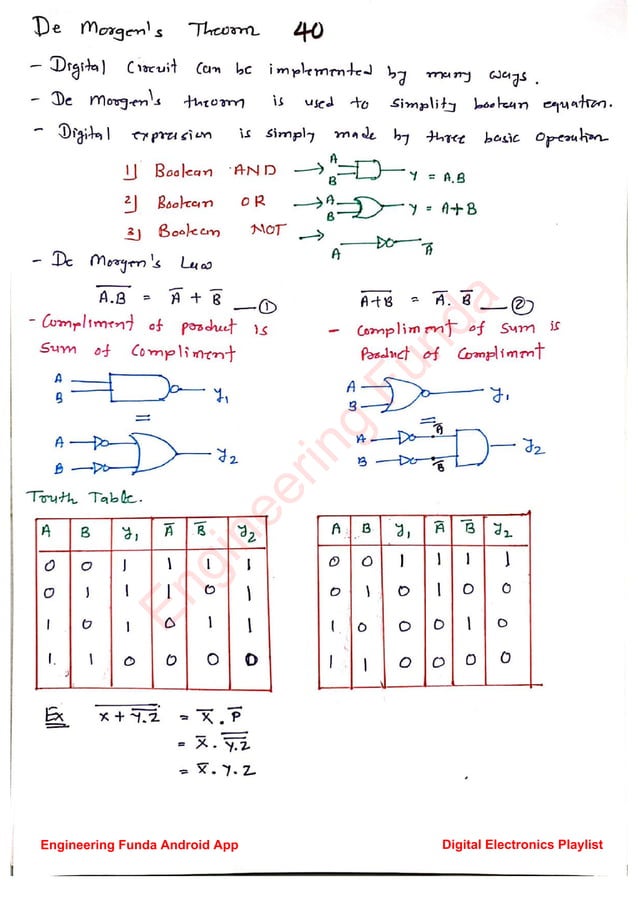 De Morgen's Theorm 40
- Digital Circuit can be implemented by many ways.
- De Morgen's theorm is used to simplity boolean equation.
- Digital exprecision is simply made by three basic operation
1) Boolean AND → A B Y = A.B
2) Boolean OR → A B Y = A+B
3) Boolean NOT → A A̅
- De Morgen's Law
\overline{A.B} = A̅ + B̅ —①
- Compliment of product is
sum of compliment
A
B
y₁
=
A
B
y₂
\overline{A+B} = A̅ . B̅ —②
- compliment of sum is
Product of compliment
A
B
y₁
=
A A̅
B B̅
y₂
Truth Table.
A B y₁ A̅ B̅ y₂
0 0 1 1 1 1
0 1 1 1 0 1
1 0 1 0 1 1
1. 1 0 0 0 0
A B y₁ A̅ B̅ y₂
0 0 1 1 1 1
0 1 0 1 0 0
1 0 0 0 1 0
1 1 0 0 0 0
Ex \overline{x + \overline{y.z}} = x̅ . P̅
= x̅ . \overline{\overline{y.z}}
= x̅ . y . z
Engineering Funda
Engineering Funda Android App
Digital Electronics Playlist